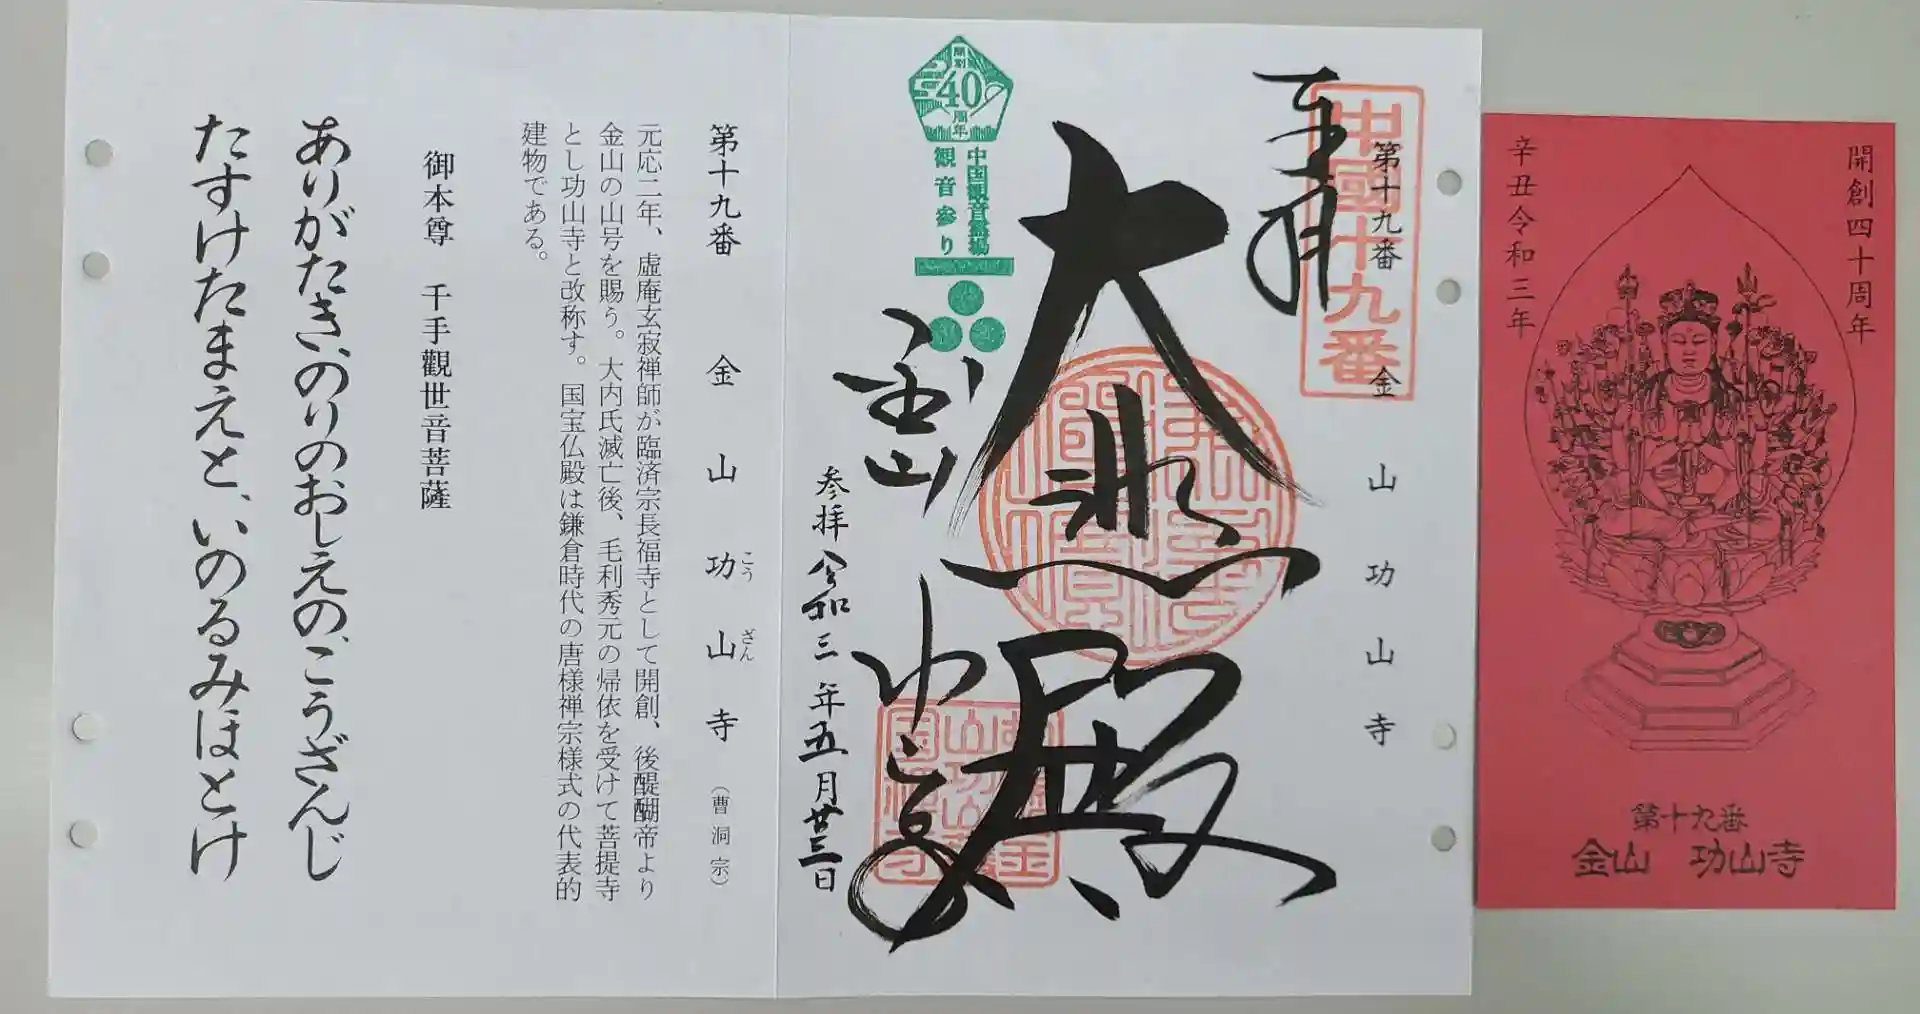 開創四十周年
辛丑令和三年
第十九番
金山 功山寺
中國十九番
第十九番 金山功山寺
奉拝
大悲殿
開創
40
周年
中国観音霊場
観音参り
金山
功山寺
参拝 令和三年五月廿三日
第十九番 金山功山寺(曹洞宗)
こうざん
元応二年、虚庵玄寂禅師が臨済宗長福寺として開創、後醍醐帝より
金山の山号を賜う。大内氏滅亡後、毛利秀元の帰依を受けて菩提寺
とし功山寺と改称す。国宝仏殿は鎌倉時代の唐様禅宗様式の代表的
建物である。
御本尊 千手觀世音菩薩
ありがたき、のりのおしえの、こうざんじ
たすけたまえと、いのるみほとけ